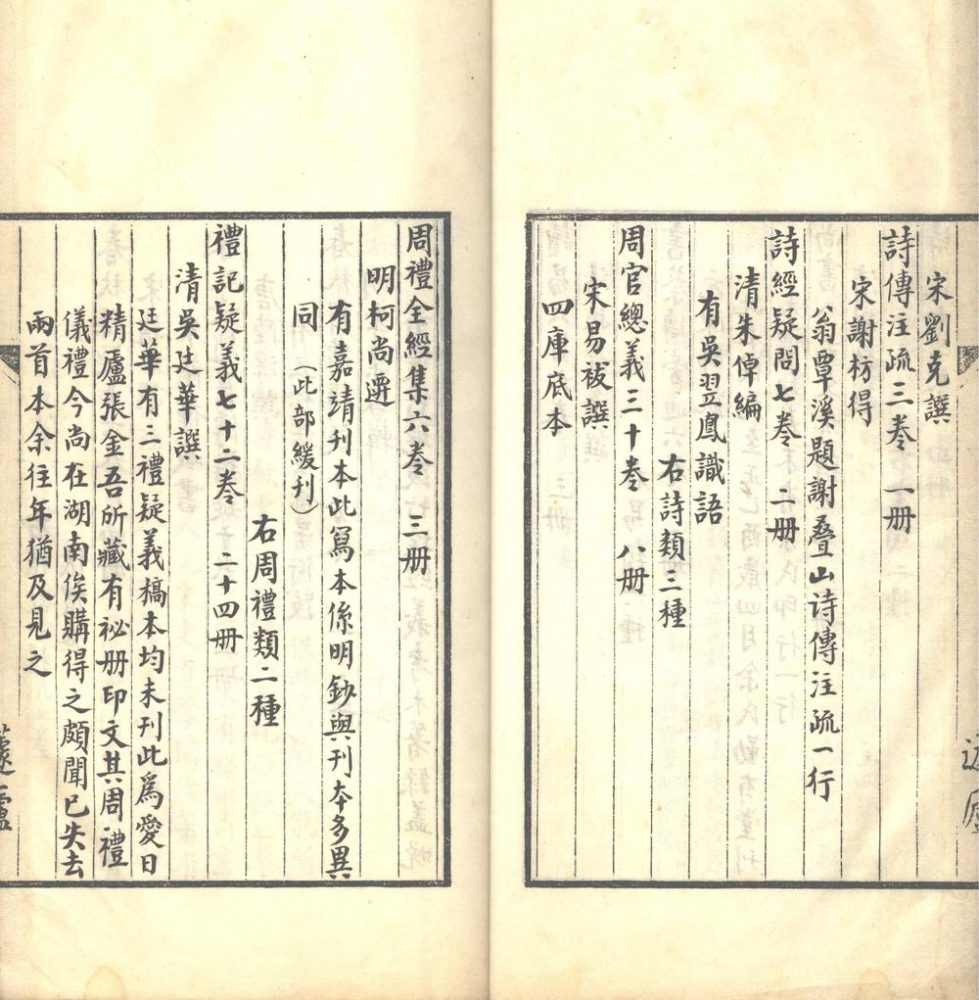 宋劉克譔
詩傳注疏三卷　一册
宋謝枋得
翁覃溪題謝叠山诗傳注疏一行
詩經疑問七卷　二册
清朱倬編
有吳翌鳳識語
右詩類三種
周官總義三十卷　八册
宋易袚譔
四庫底本
周禮全經集六卷　三册
明柯尚遷
有嘉靖刊本此寫本係明鈔與刊本多異
同（此部緩刊）
右周禮類二種
禮記疑義七十二卷　二十四册
清吳廷華譔
廷華有三禮疑義槁本均未刊此爲愛日
精廬張金吾所藏有祕册印文其周禮
儀禮今尚在湖南俟購得之頗聞已失去
兩首本余往年猶及見之